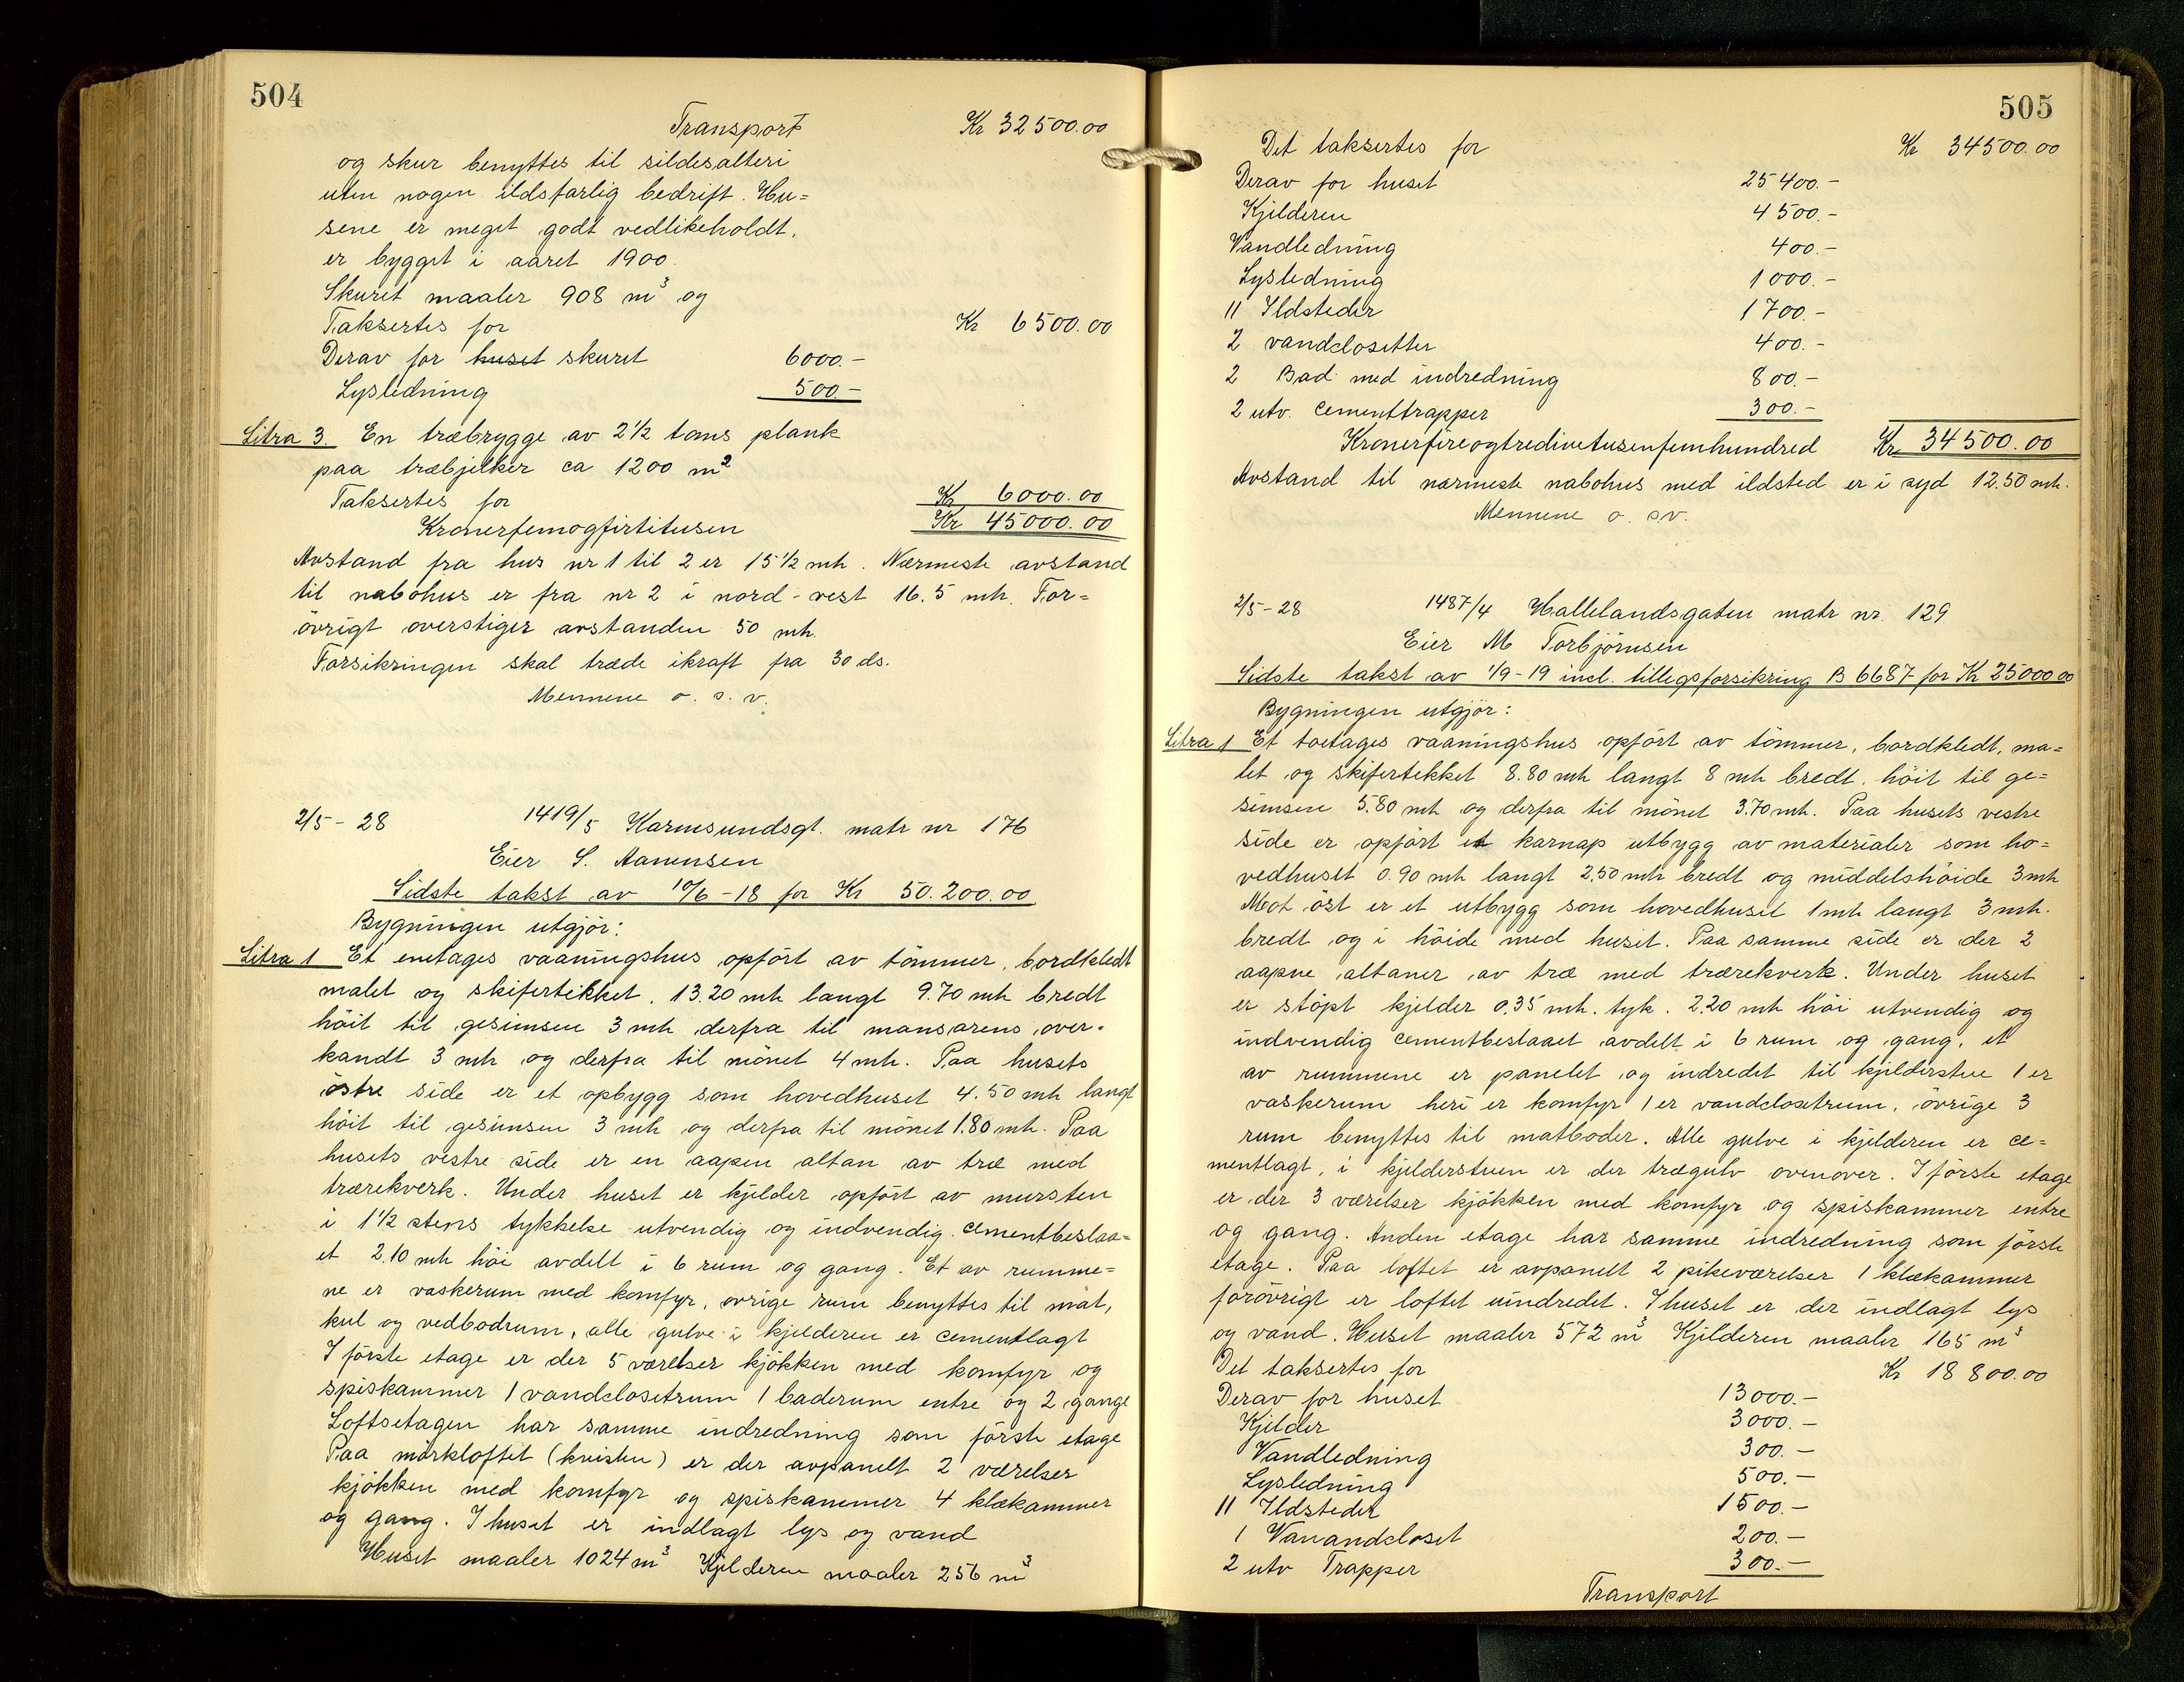 504
Transport Kr 32500.00
og skur benyttes til sildesalteri
uten nogen ildsfarlig bedrift. Hu=
sene er meget godt vedlikeholdt.
er bygget i aaret 1900.
Skuret maaler 908 m³ og
Taksertes for Kr 6500.00
Derav for huset skuret 6000.-
Lysledning 500.-
Litra 3. En træbrygge av 2½ toms plank
paa træbjelker ca 1200 m²
Taksertes for Kr 6000.00
Kronerfemogfirtitusen Kr 45000.00
Avstand fra hus nr 1 til 2 er 15½ mtr. Nærmeste avstand
til nabohus er fra nr 2 i nord-vest 16.5 mtr. For=
övrigt overstiger avstanden 50 mtr.
Forsikringen skal træde ikraft fra 30 ds.
Mennene o. s. v.
2/5 - 28 1419/5 Karmsundsgt. matr nr 176
Eier S. Aanensen
Sidste takst av 10/6 - 18 for Kr 50.200.00
Bygningen utgjör:
Litra 1 Et enetages vaaningshus opfört av tömmer, bordkledt
malet og skifertekket. 13.20 mtr langt 9.70 mtr bredt
höit til gesimsen 3 mtr derfra til mansarens over-
kandt 3 mtr og derfra til mönet 4 mtr. Paa husets
östre side er et opbygg som hovedhuset 4.50 mtr langt
höit til gesimsen 3 mtr og derfra til mönet 1.80 mtr. Paa
husets vestre side er en aapen altan av træ med
trærekverk. Under huset er kjelder opfört av mursten
i 1½ stens tykkelse utvendig og indvendig cementbeslaa=
et 2.10 mtr höi avdelt i 6 rum og gang. Et av rumme=
ne er vaskerum med komfyr, övrige rum benyttes til mat,
kul og vedbodrum, alle gulve i kjelderen er cementlagt
I förste etage er der 5 værelser kjökken med komfyr og
spiskammer 1 vandclosetrum 1 baderum entre og 2 gange
Loftsetagen har samme indredning som förste etage
Paa mörkloftet (kvisten) er der avpanelt 2 værelser
kjökken med komfyr og spiskammer 4 klækammer
og gang. I huset er indlagt lys og vand
Huset maaler 1024 m³ Kjelderen maaler 256 m³
505
Det taksertes for Kr 34500.00
Derav for huset 25400.-
Kjelderen 4500.-
Vandledning 400.-
Lysledning 1000.-
11 Ildsteder 1700.-
2 vandclosetter 400.-
2 Bad med indredning 800.-
2 utv. cementtrapper 300.-
Kronerfireogtredivetusenfemhundred Kr 34500.00
Avstand til nærmeste nabohus med ildsted er i syd 12.50 mtr.
Mennene o. s.v.
2/5-28 1487/4 Hallelandsgaten matr nr. 129
Eier M Torbjörnsen
Sidste takst av 1/9-19 incl. tillegsforsikring B 6687 for Kr 25000.00
Bygningen utgjör:
Litra 1 Et toetages vaaningshus opfört av tömmer, bordkledt, ma=
let og skifertekket 8.80 mtr langt 8 mtr bredt. höit til ge=
simsen 5.80 mtr og derfra til mönet 3.70 mtr. Paa husets vestre
side er opfört et karnap utbygg av materialer som ho=
vedhuset 0.90 mtr langt 2.50 mtr bredt og middelshöide 3 mtr
Mot öst er et utbygg som hovedhuset 1 mtr langt 3 mtr.
bredt og i höide med huset. Paa samme side er der 2
aapne altaner av træ med trærekverk. Under huset
er stöpt kjelder 0.35 mtr. tyk. 2.20 mtr höi utvendig og
indvendig cementbeslaaet avdelt i 6 rum og gang, et
av rummene er panelet og indredet til kjelderstue 1 er
vaskerum heri er komfyr 1 er vandclosetrum, övrige 3
rum benyttes til matboder. Alle gulve i kjelderen er ce=
mentlagt, i kjelderstuen er der trægulv ovenover. I förste etage
er der 3 værelser kjökken med komfyr og spiskammer entre
og gang. Anden etage har samme indredning som förste
etage. Paa loftet er avpanelt 2 pikeværelser 1 klækammer
forövrigt er loftet uindredet. I huset er der indlagt lys
og vand. Huset maaler 572 m³ Kjelderen maaler 165 m³
Det taksertes for Kr 18800.00
Derav for huset 13000.-
Kjelder 3000.-
Vandledning 300.-
Lysledning 500.-
11 Ildsteder 1500.-
1 Vanandcloset 200.-
2 utv Trapper 300.-
Transport